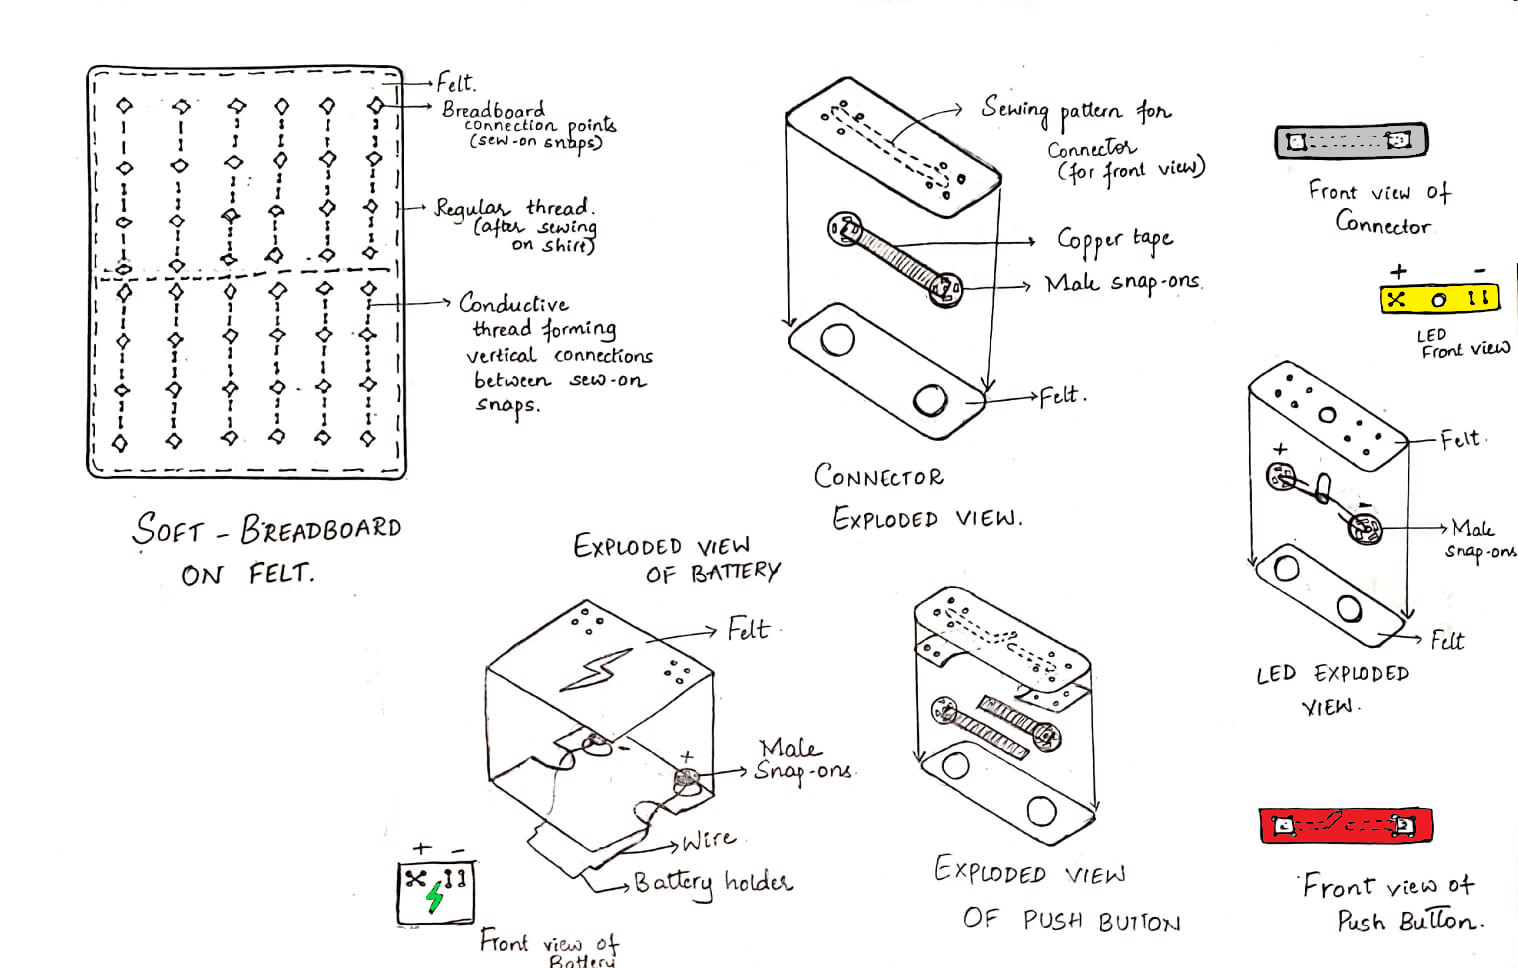 Felt.
Breadboard
connection points
(sew-on snaps)
Regular thread.
(after sewing
on shirt)
Conductive
thread forming
vertical connections
between sew-on
snaps.
SOFT - BREADBOARD
ON FELT.
Sewing pattern for
Connector
(for front view)
Copper tape
Male snap-ons.
Felt.
CONNECTOR
EXPLODED VIEW.
Front view of
Connector
+ -
LED
Front view
Felt.
+
-
Male
snap-ons
Felt
LED EXPLODED
VIEW.
EXPLODED VIEW
OF BATTERY
Felt
-
+
Male
Snap-ons.
Wire
Battery holder
+ -
Front view of
Battery
EXPLODED VIEW
OF PUSH BUTTON
Front view of
Push Button.